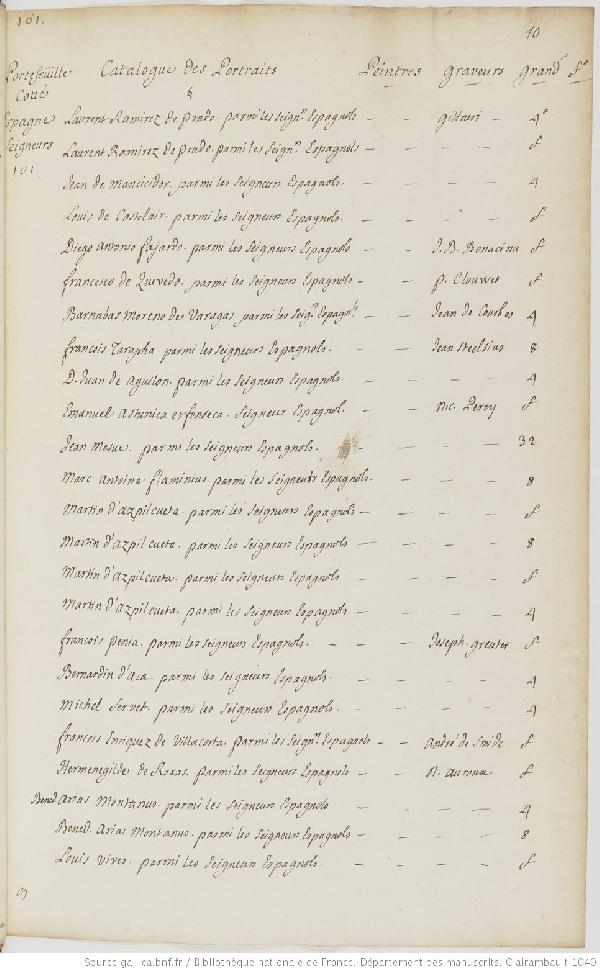 101.
40
Portefeüille Catalogue Des Portraits Peintres graveurs grand.r fo
Cotté
Espagne Laurent Ramirez de prado. parmi les seign.rs Espagnols - - 4o
Seigneurs Laurent Ramirez de prado. parmi les seign.rs Espagnols - - - - f
101 Jean de Mancicidor. parmi les seigneurs Espagnols. - - - - 4
Louis de Castelair. parmi les seigneurs Espagnols. - - - - f
Diego Antonio fajardo. parmi les seigneurs Espagnols - - J. B. Bonacina f
francesco de Quevedo. parmi les seigneurs Espagnols - - p. Clouwet f
Barnabas Moreno des Varagas. parmi les seig.rs Espagn.ls - - Jean de Courbes 4
francois Tarapha parmi les seigneurs Espagnols. - - Jean steelsius 8
D. Juan de aguilon. parmi les seigneurs Espagnols. - - - - 4
Emanuel Astunica et fonseca. Seigneur Espagnol. - - nic. Perey f
Jean Mesue. parmi les seigneurs Espagnols. - - - - 32
Marc Antoine flaminius. parmi les seigneurs Espagnols. - - - - 8
Martin d'azpilcueta. parmi les seigneurs Espagnols - - - - f
Martin d'Azpilcueta. parmi les seigneurs Espagnols - - - - 8
Martin d'Azpilcueta. parmi les seigneurs Espagnols - - - - f
Martin d'Azpilcueta. parmi les seigneurs Espagnols - - - - 4
francois Penia. parmi les seigneurs Espagnols. - - - Joseph. greuter f
Bernardin d'Aca. parmi les seigneurs Espagnols. - - - - 4
Michel Servet. parmi les seigneurs Espagnols. - - - - 4
francois Enriquez de Villacorta. parmi les seign.rs Espagnols - - André de Smidt f
Hermenegilde de Roxas. parmi les seigneurs Espagnols - - f
Bened. Arias Montanus. parmi les seigneurs Espagnols - - - - 4
Bened. Arias Montanus. parmi les seigneurs Espagnols - - - - 8
Louis Vives. parmi les seigneurs Espagnols. - - - - f
Source gallica.bnf.fr / Bibliothèque nationale de France. Département des manuscrits. Clairambault 1040